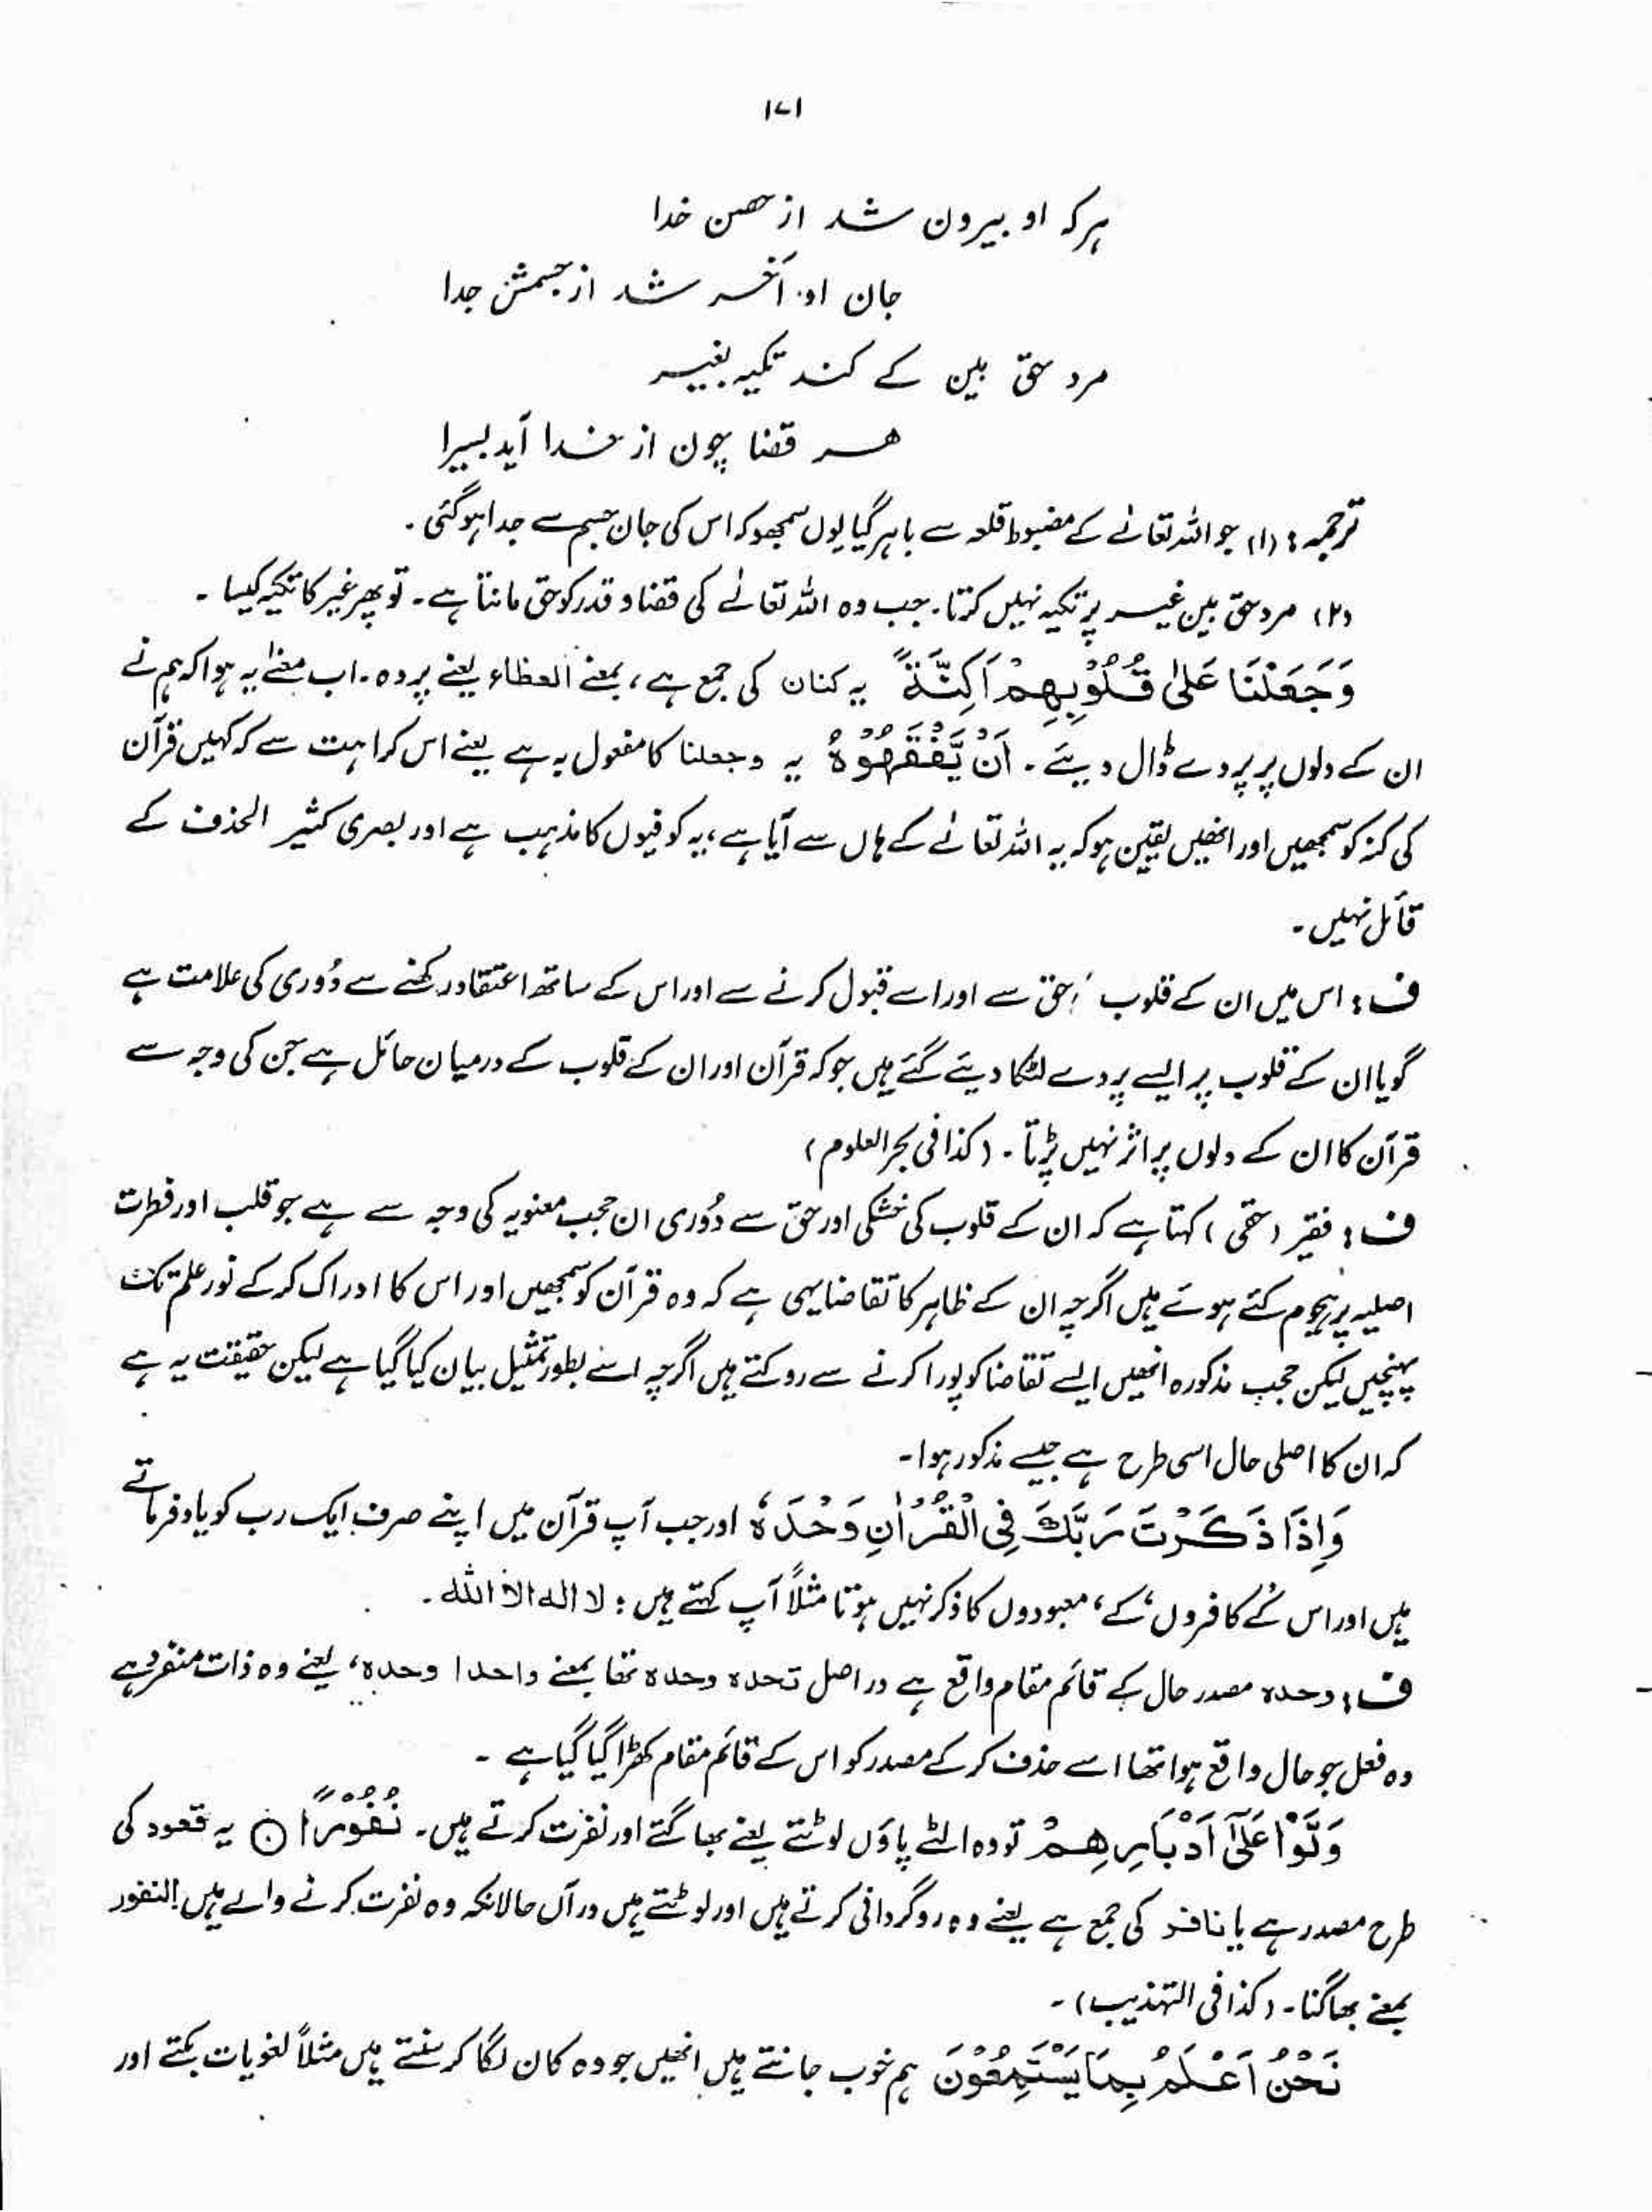 ۱۷۱
ہر کہ او بیرون شد از حصن خدا
جان او آخر شد از جسمش جدا
مرد حق بین کے کند تکیہ بغیر
ھر قضا چون از خدا آید بسیرا
ترجمہ: (۱) جو اللہ تعالےٰ کے مضبوط قلعہ سے باہر گیا یوں سمجھو کہ اس کی جان جسم سے جدا ہو گئی۔
(۲) مرد حق بین غیر پر تکیہ نہیں کرتا۔ جب وہ اللہ تعالےٰ کی قضا و قدر کو حق مانتا ہے۔ تو پھر غیر کا تکیہ کیسا۔
وَجَعَلْنَا عَلٰی قُلُوْبِهِمْ اَکِنَّةً یہ کنان کی جمع ہے، بمعنے الغطاء یعنے پردہ۔ اب معنےٰ یہ ہوا کہ ہم نے
ان کے دلوں پر پردے ڈال دیئے۔ اَنْ یَّفْقَهُوْهُ یہ وجعلنا کا مفعول بہ ہے یعنے اس کراہت سے کہ کہیں قرآن
کی کنہ کو سمجھیں اور انھیں یقین ہو کہ یہ اللہ تعالےٰ کے ہاں سے آیا ہے، یہ کوفیوں کا مذہب ہے اور بصری کثیر الحذف کے
قائل نہیں۔
ف: اس میں ان کے قلوب حق سے اور اسے قبول کرنے سے اور اس کے ساتھ اعتقاد رکھنے سے دُوری کی علامت ہے
گویا ان کے قلوب پر ایسے پردے لٹکا دیئے گئے ہیں جو کہ قرآن اور ان کے قلوب کے درمیان حائل ہے جن کی وجہ سے
قرآن کا ان کے دلوں پر اثر نہیں پڑتا۔ (کذا فی بحر العلوم)
ف: فقیر (حقی) کہتا ہے کہ ان کے قلوب کی خشکی اور حق سے دُوری ان حجب معنویہ کی وجہ سے ہے جو قلب اور فطرت
اصلیہ پر ہجوم کئے ہوئے ہیں اگرچہ ان کے ظاہر کا تقاضا یہی ہے کہ وہ قرآن کو سمجھیں اور اس کا ادراک کر کے نور علم تک
پہنچیں لیکن حجب مذکورہ انھیں ایسے تقاضا کو پورا کرنے سے روکتے ہیں اگرچہ اسے بطور تمثیل بیان کیا گیا ہے لیکن حقیقت یہ ہے
کہ ان کا اصلی حال اسی طرح ہے جیسے مذکور ہوا۔
وَاِذَا ذَکَرْتَ رَبَّکَ فِی الْقُرْاٰنِ وَحْدَهٗ اور جب آپ قرآن میں اپنے صرف ایک رب کو یاد فرماتے
ہیں اور اس کے کافروں کے، معبودوں کا ذکر نہیں ہوتا مثلاً آپ کہتے ہیں: لا الہ الا اللہ۔
ف: وحدہ مصدر حال کے قائم مقام واقع ہے دراصل تحدہ وحدہ تھا بمعنے واحدا وحدہ، یعنے وہ ذات منفرد ہے
وہ فعل جو حال واقع ہوا تھا اسے حذف کر کے مصدر کو اس کے قائم مقام کھڑا گیا گیا ہے۔
وَلَّوْا عَلٰٓی اَدْبَارِهِمْ تو وہ الٹے پاؤں لوٹتے یعنے بھاگتے اور نفرت کرتے ہیں۔ نُفُوْرًا ۞ یہ قعود کی
طرح مصدر ہے یا نافر کی جمع ہے یعنے وہ روگردانی کرتے ہیں اور لوٹتے ہیں درآں حالانکہ وہ نفرت کرنے والے ہیں النفور
بمعنے بھاگنا۔ (کذا فی التہذیب)۔
نَحْنُ اَعْلَمُ بِمَا یَسْتَمِعُوْنَ ہم خوب جانتے ہیں انھیں جو وہ کان لگا کر سنتے ہیں مثلاً لغویات بکتے اور